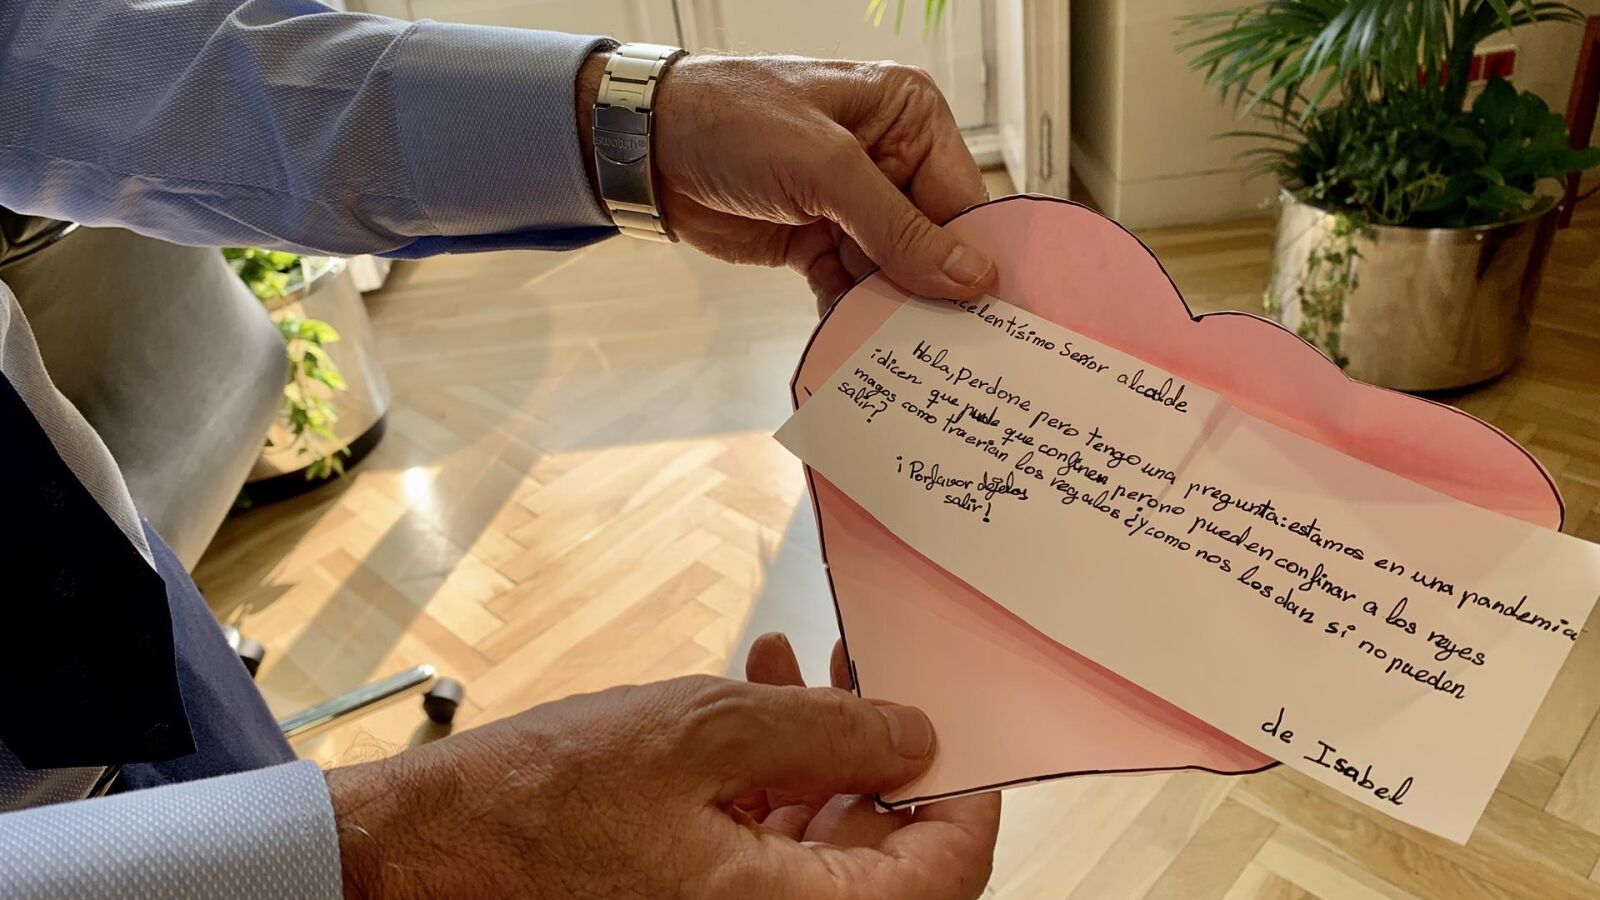 swatch
celentísimo Señor alcalde
Hola, Perdone pero tengo una pregunta: estamos en una pandemia
¡dicen que puede que confinen pero no pueden confinar a los reyes
magos como traerian los regalos ¿y como nos los dan si no pueden
salir?
¡Porfavor déjelos
salir!
de Isabel